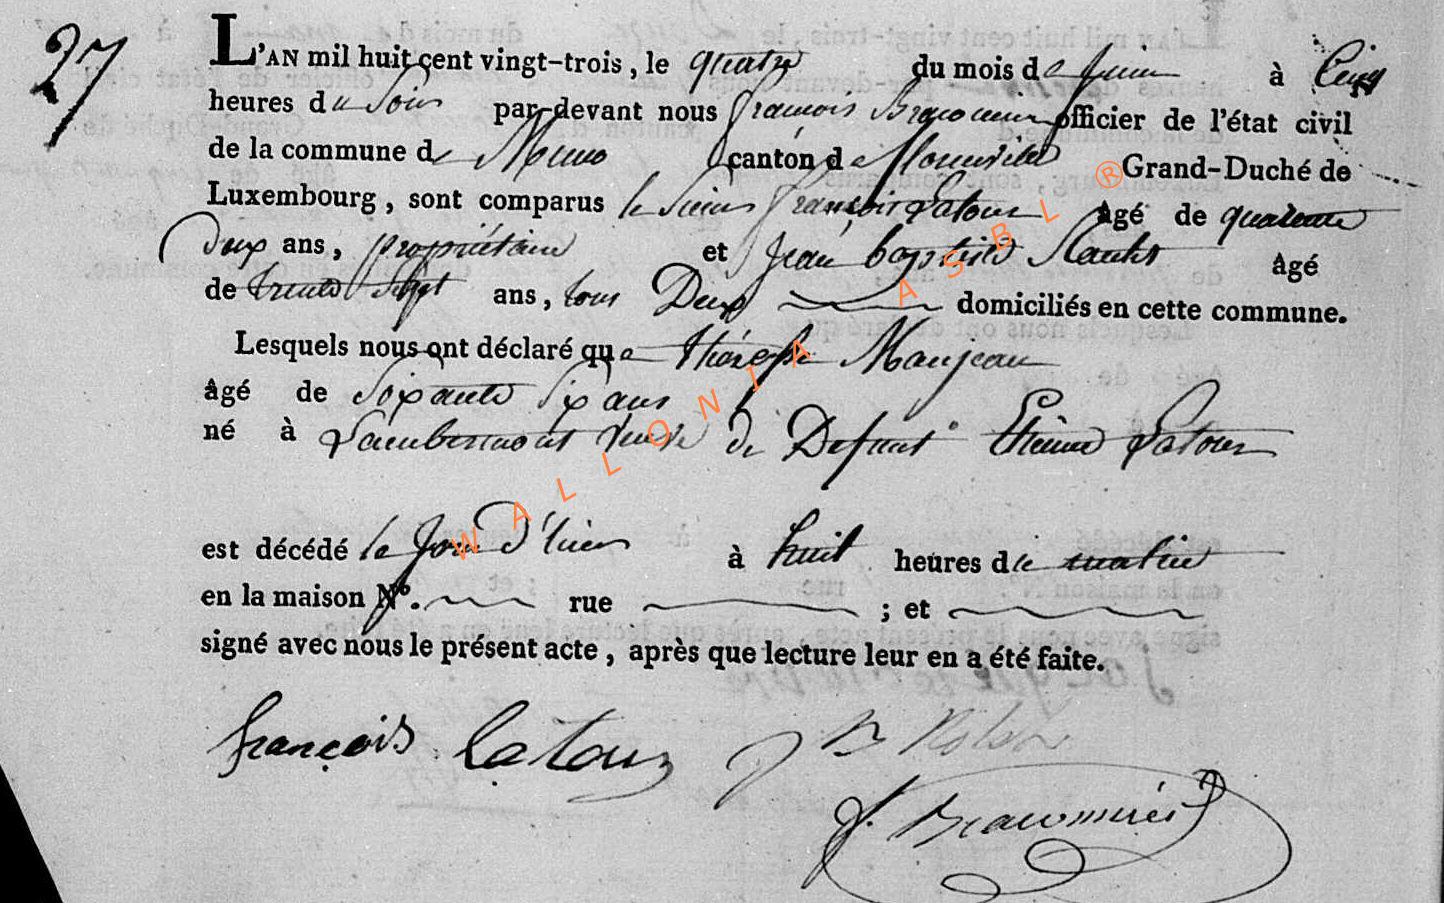 27
L'AN mil huit cent vingt-trois, le quatre du mois de juin à Cinq
heures du Soir par-devant nous francois Braconnier officier de l'état civil
de la commune de Muno canton de florenville Grand-Duché de
Luxembourg, sont comparus le Sieur françois Latour âgé de quarante
deux ans, propriétaire et Jean baptiste âgé
de trente Sept ans, tous Deux domiciliés en cette commune.
Lesquels nous ont déclaré que thérese Manjean
âgé de Soixante Six ans
né à Lambermont veuve de Defunt Etienne Latour
est décédé le Jour D'hier à huit heures du matin
en la maison N°. rue ; et
signé avec nous le présent acte, après que lecture leur en a été faite.
françois Latour J B
f. Braconnier
WALLONIA ASBL ®